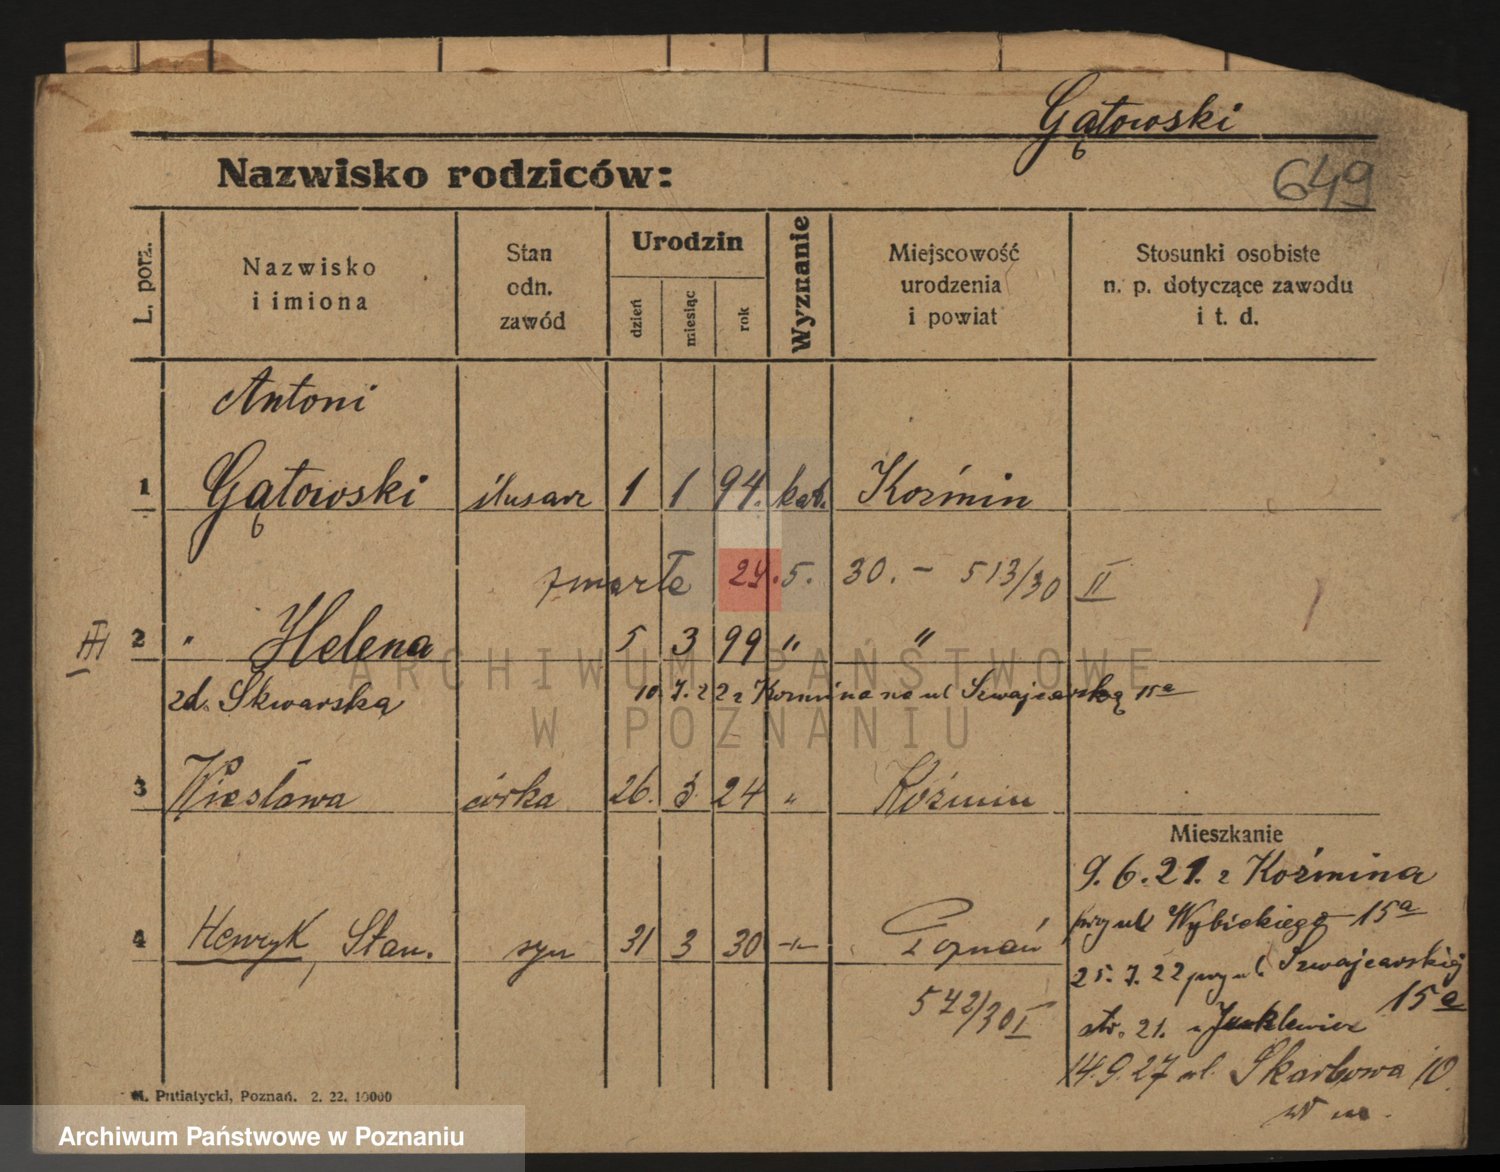 Gątowski
649
Nazwisko rodziców:
L. porz.
Nazwisko
i imiona
Stan
odn.
zawód
Urodzin
dzień
miesiąc
rok
Wyznanie
Miejscowość
urodzenia
i powiat
Stosunki osobiste
n. p. dotyczące zawodu
i t. d.
Antoni
1 Gątowski ślusarz 1 1 94. kat. Koźmin
zmarła 29.5. 30. - 513/30 II
2 " Helena 5 3 99 " "
zd. Skwarska 10.7.22 z Koźmina na ul Szwajcarską 15a
3 Wiesława córka 26. 3 24 " Koźmin
Mieszkanie
9.6.21. z Koźmina
przy ul Wybickiego 15a
4 Henryk, Stan. syn 31 3 30 -"- Poznań
25.7.22 przy ul. Szwajcarskiej
15a
542/30 I
str. 21. u
14.9.27 ul. Skarbowa 10.
w m.
M. Putiatycki, Poznań. 2. 22. 10000
ARCHIWUM PAŃSTWOWE
W POZNANIU
Archiwum Państwowe w Poznaniu